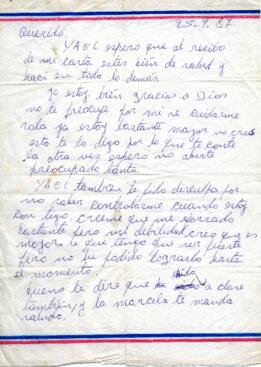 25-9-87
Querido,
YAEL espero que al recibo
de mi carta estes bien de salud y
haci en todo lo demas.
Yo estoy bien gracias a Dios
no te preocupe por mi se cuidarme
sola ya estoy bastante mayor no crees
esto te lo digo por lo que te conte
la otra ves espero no averte
preocupado tanto.
YAEL tambien te pido disculpa por
no saber controlarme cuando estoy
con tigo creeme que me
bastante pero mi debilidad creo que es
mayor se que tengo que ser fuerte
pero no he podido lograrlo hasta
el momento.
quero te dire que
tambien, y la marcela te manda
saludo.